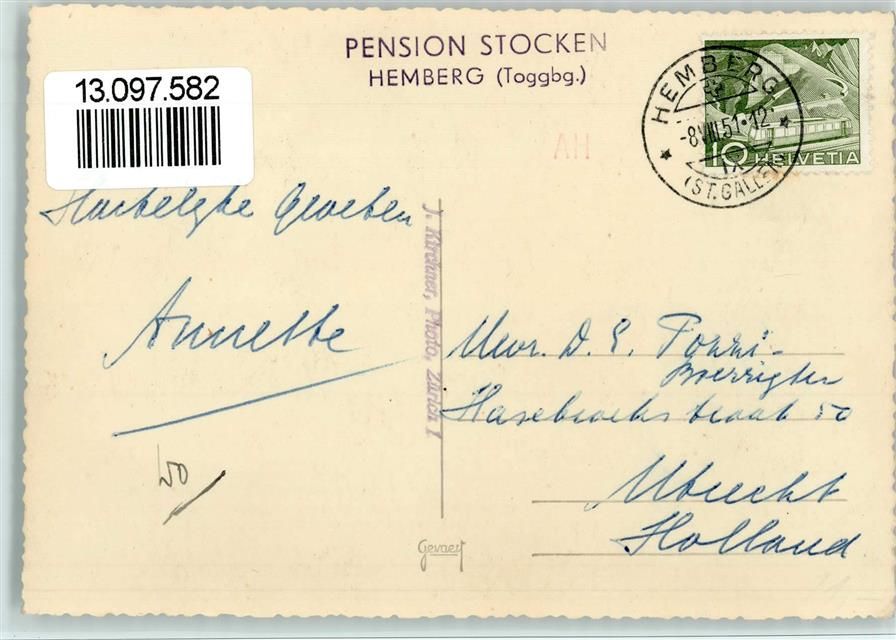 PENSION STOCKEN
HEMBERG (Toggbg.)
13.097.582
HEMBERG
-8.VIII.51.12
IX
(ST. GALLEN)
10 HELVETIA
AH
Hartelyke Groeten
Annette
J. Kirchner, Photo, Zürich 1
Mevr. D. E. Pozzi-
Boerrigter
Hasebroekstraat 50
Utrecht
Holland
Gevaert